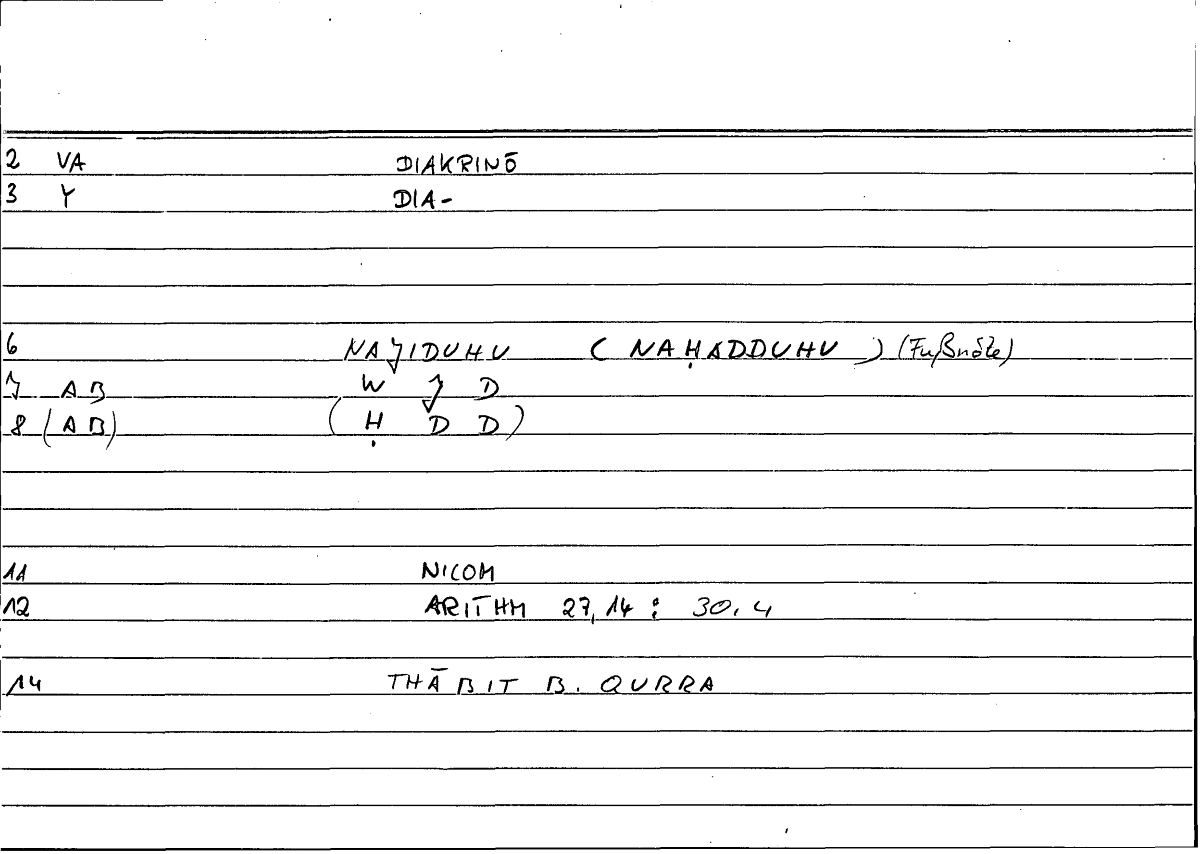 2 VA DIAKRINŌ
3 Y DIA-
6 NAJ̌IDUHU ( NAḤADDUHU ) (Fußnote)
7 AB W J̌ D
8 (AB) (Ḥ D D)
11 NICOM
12 ARITHM 27,14 : 30.4
14 THĀBIT B. QURRA